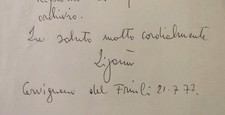 archivio.
La saluto molto cordialmente
Cervignano del Friuli 21.7.77.